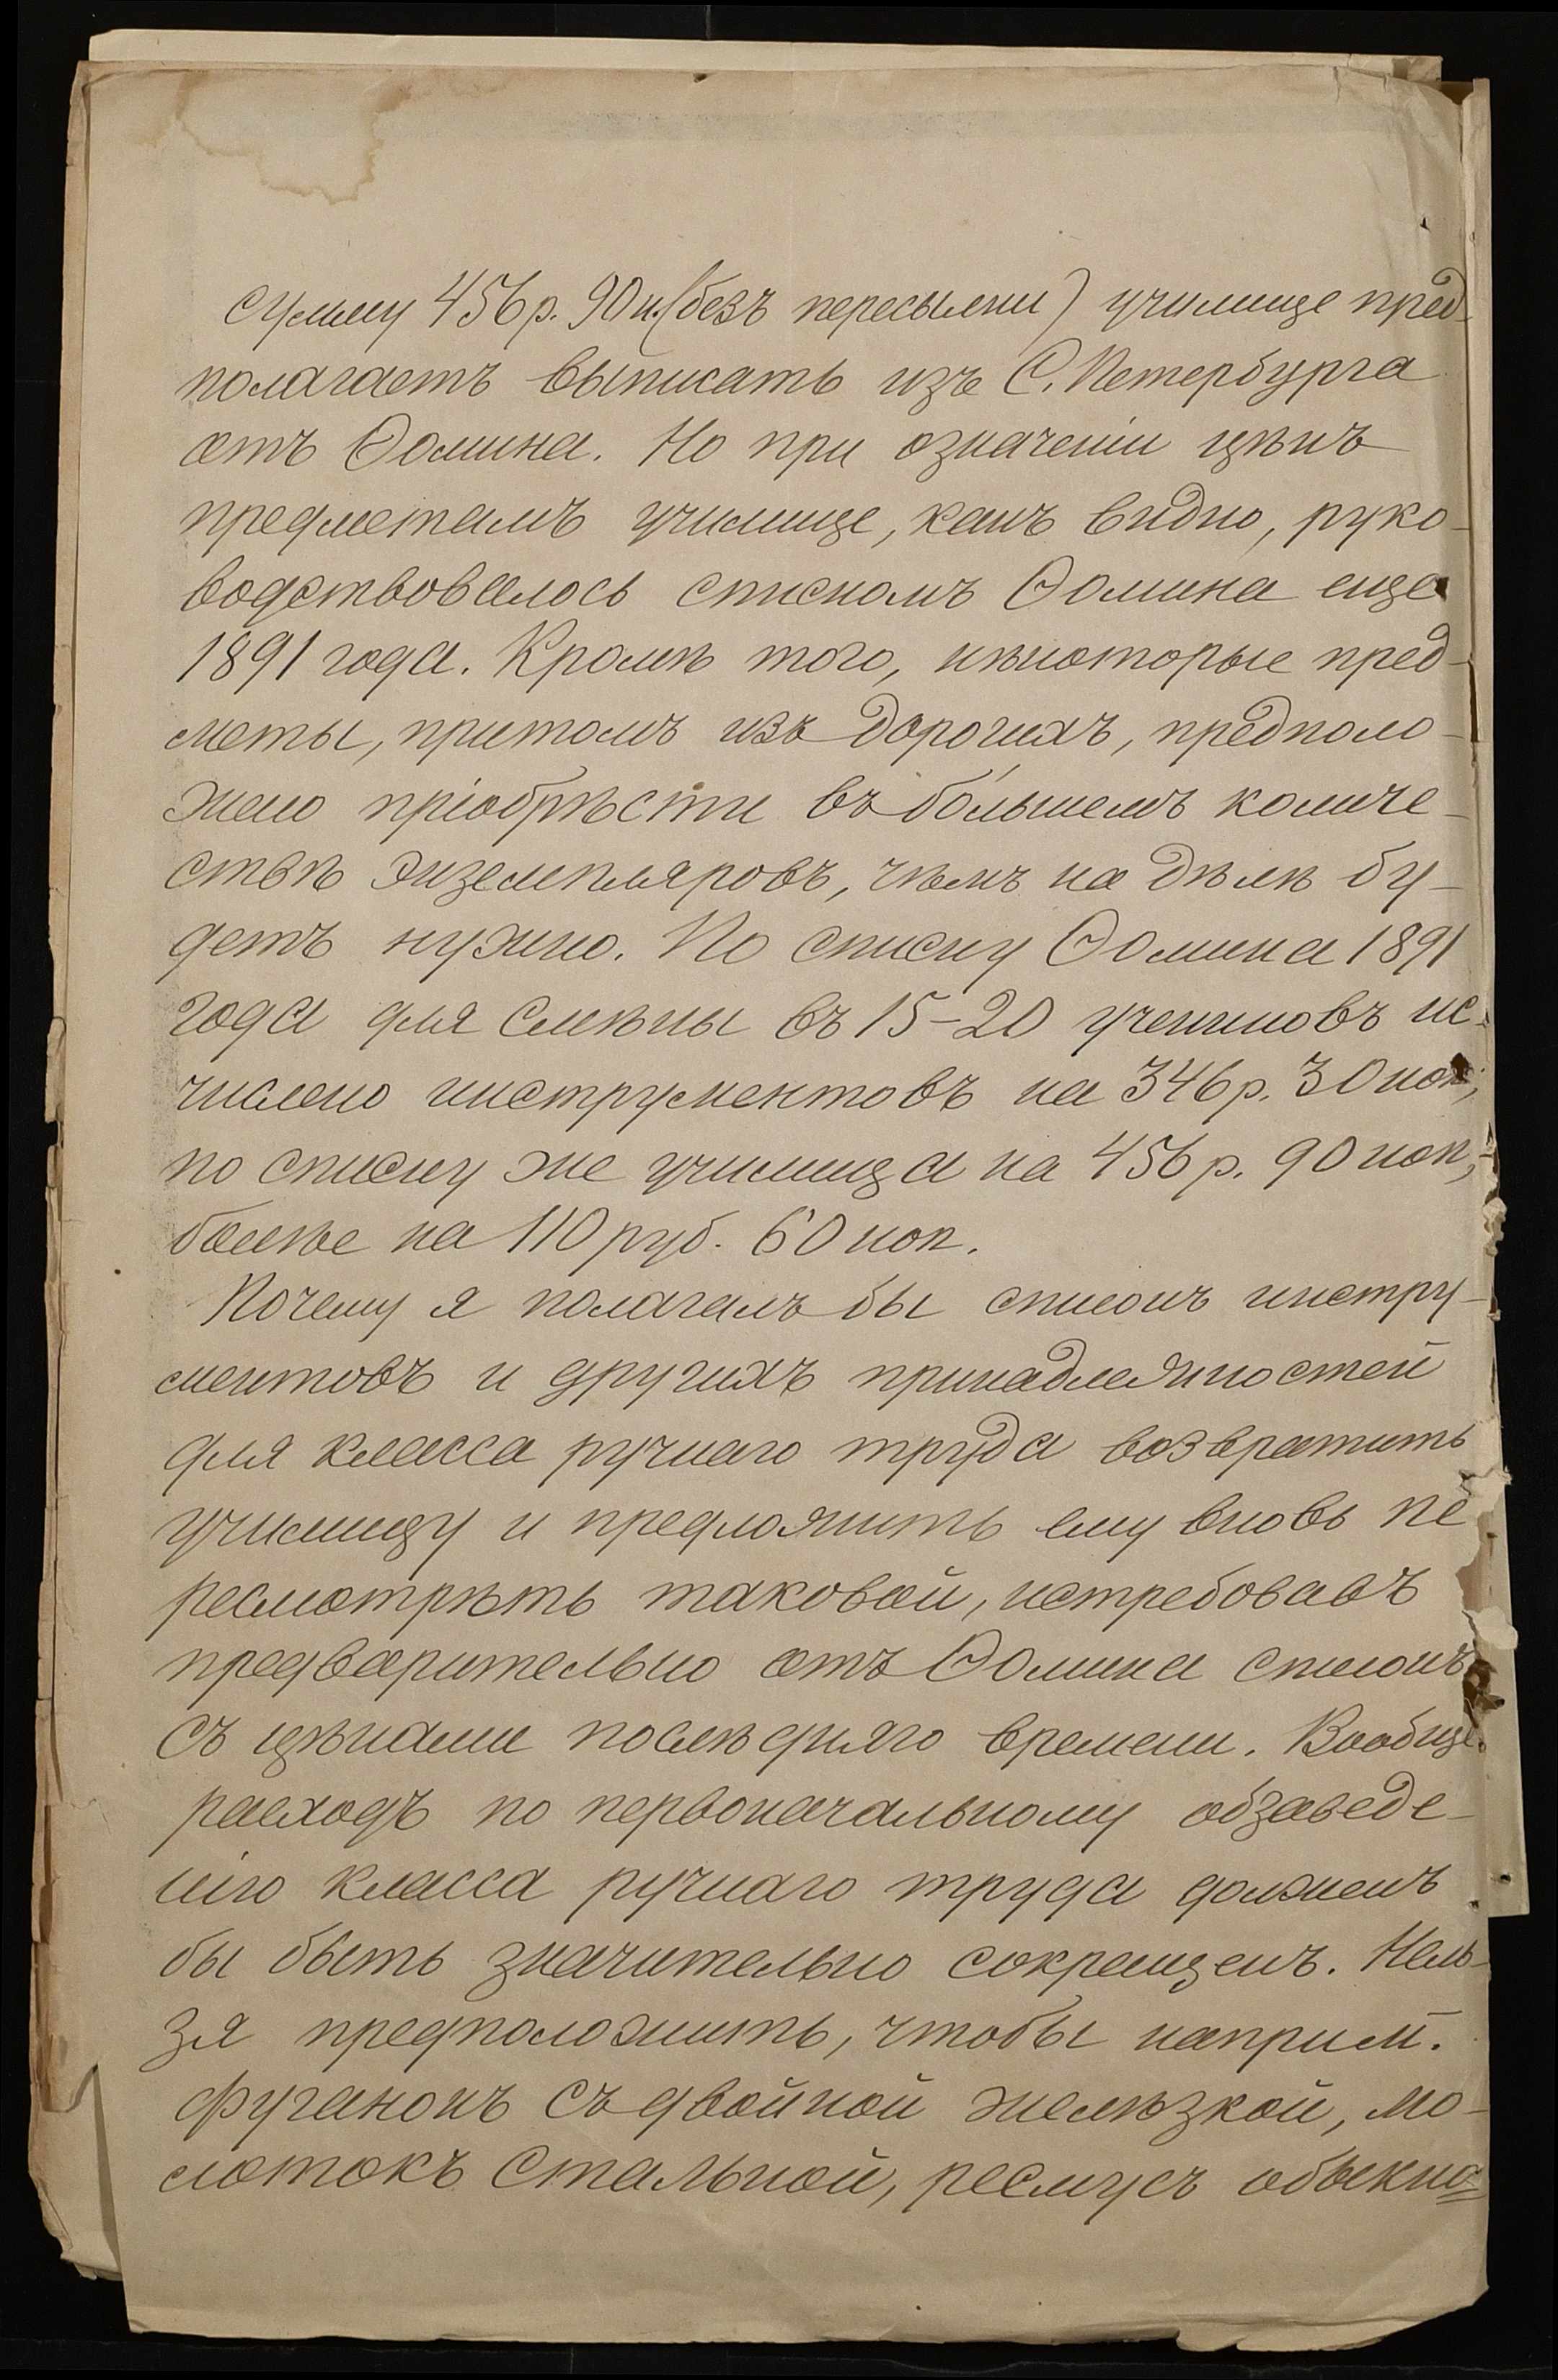 сумму 456 р. 90 к. (безъ пересылки) училище пред-
полагаетъ выписать изъ С. Петербурга
отъ Ѳомина. Но при означеніи цѣнъ
предметамъ училище, какъ видно, руко-
водствовалось спискомъ Ѳомина еще
1891 года. Кромѣ того, нѣкоторые пред-
меты, притомъ изъ дорогихъ, предполо-
жено пріобрѣсти въ бо́льшемъ количе-
ствѣ экземпляровъ, чѣмъ на дѣлѣ бу-
детъ нужно. По списку Ѳомина 1891
года для смѣны въ 15-20 учениковъ ис-
числено инструментовъ на 346 р. 30 коп,
по списку же училища на 456 р. 90 коп,-
болѣе на 110 руб. 60 коп.
Почему я полагалъ бы списокъ инстру-
ментовъ и другихъ принадлежностей
для класса ручнаго труда возвратить
училищу и предложить ему вновь пе
ресмотрѣть таковой, истребовавъ
предварительно отъ Ѳомина списокъ
съ цѣнами послѣдняго времени. Вообще
расходъ по первоначальному обзаведе-
нію класса ручнаго труда долженъ
бы быть значительно сокращенъ. Нель-
зя предположить, чтобы наприм.
фуганокъ съ двойной желѣзкой, мо-
лотокъ стальной, рейсмусъ обыкно=